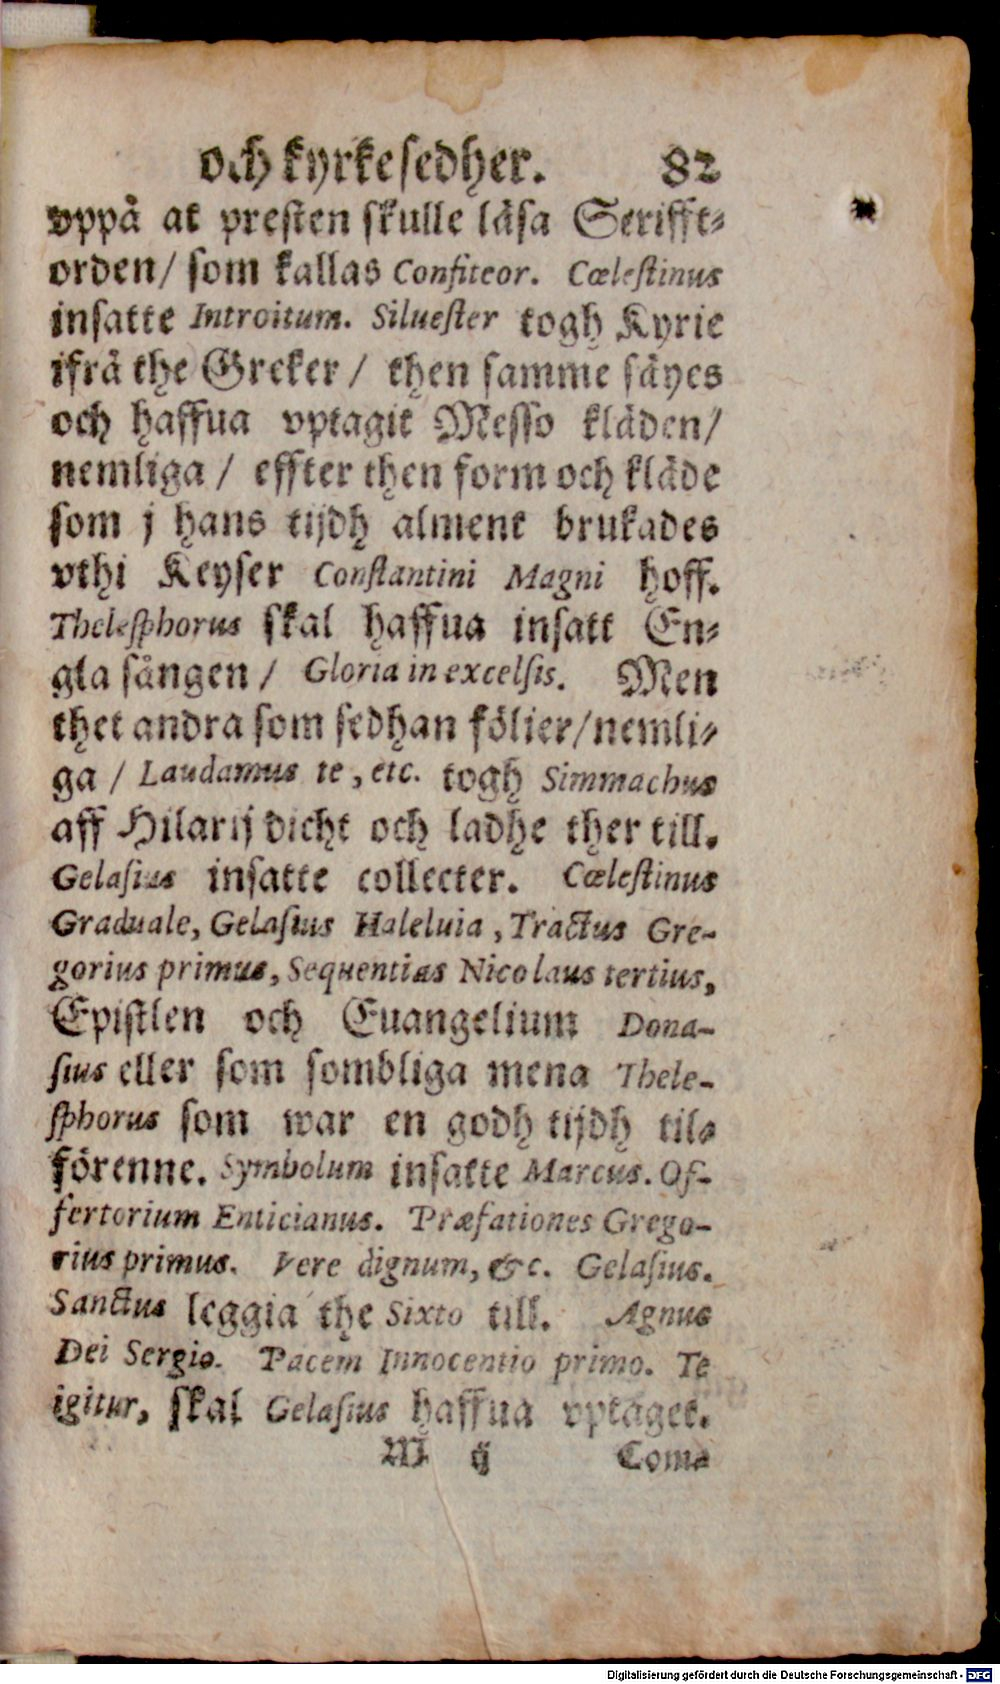 och kyrkesedher. 82
vppå at presten skulle läsa Serifft-
orden/ som kallas Confiteor. Cœlestinus
insatte Introitum. Siluester togh Kyrie
ifrå the Greker / then samme säyes
och haffua vptagit Messo kläden/
nemliga / effter then form och kläde
som j hans tijdh alment brukades
vthi Keyser Constantini Magni hoff.
Thelesphorus skal haffua insatt En-
gla sången / Gloria in excelsis. Men
thet andra som sedhan fölier/nemli-
ga / Laudamus te, etc. togh Simmachus
aff Hilarij dicht och ladhe ther till.
Gelasius insatte collecter. Cœlestinus
Graduale, Gelasius Haleluia, Tractus Gre-
gorius primus, Sequentias Nicolaus tertius,
Epistlen och Euangelium Dona-
sius eller som sombliga mena Thele-
sphorus som war en godh tijdh til-
förenne. Symbolum insatte Marcus. Of-
fertorium Enticianus. Præfationes Grego-
rius primus. Vere dignum, &c. Gelasius.
Sanctus leggia the Sixto till. Agnus
Dei Sergio. Pacem Innocentio primo. Te
igitur, skal Gelasius haffua vptaget.
M ij Com-
Digitalisierung gefördert durch die Deutsche Forschungsgemeinschaft - DFG